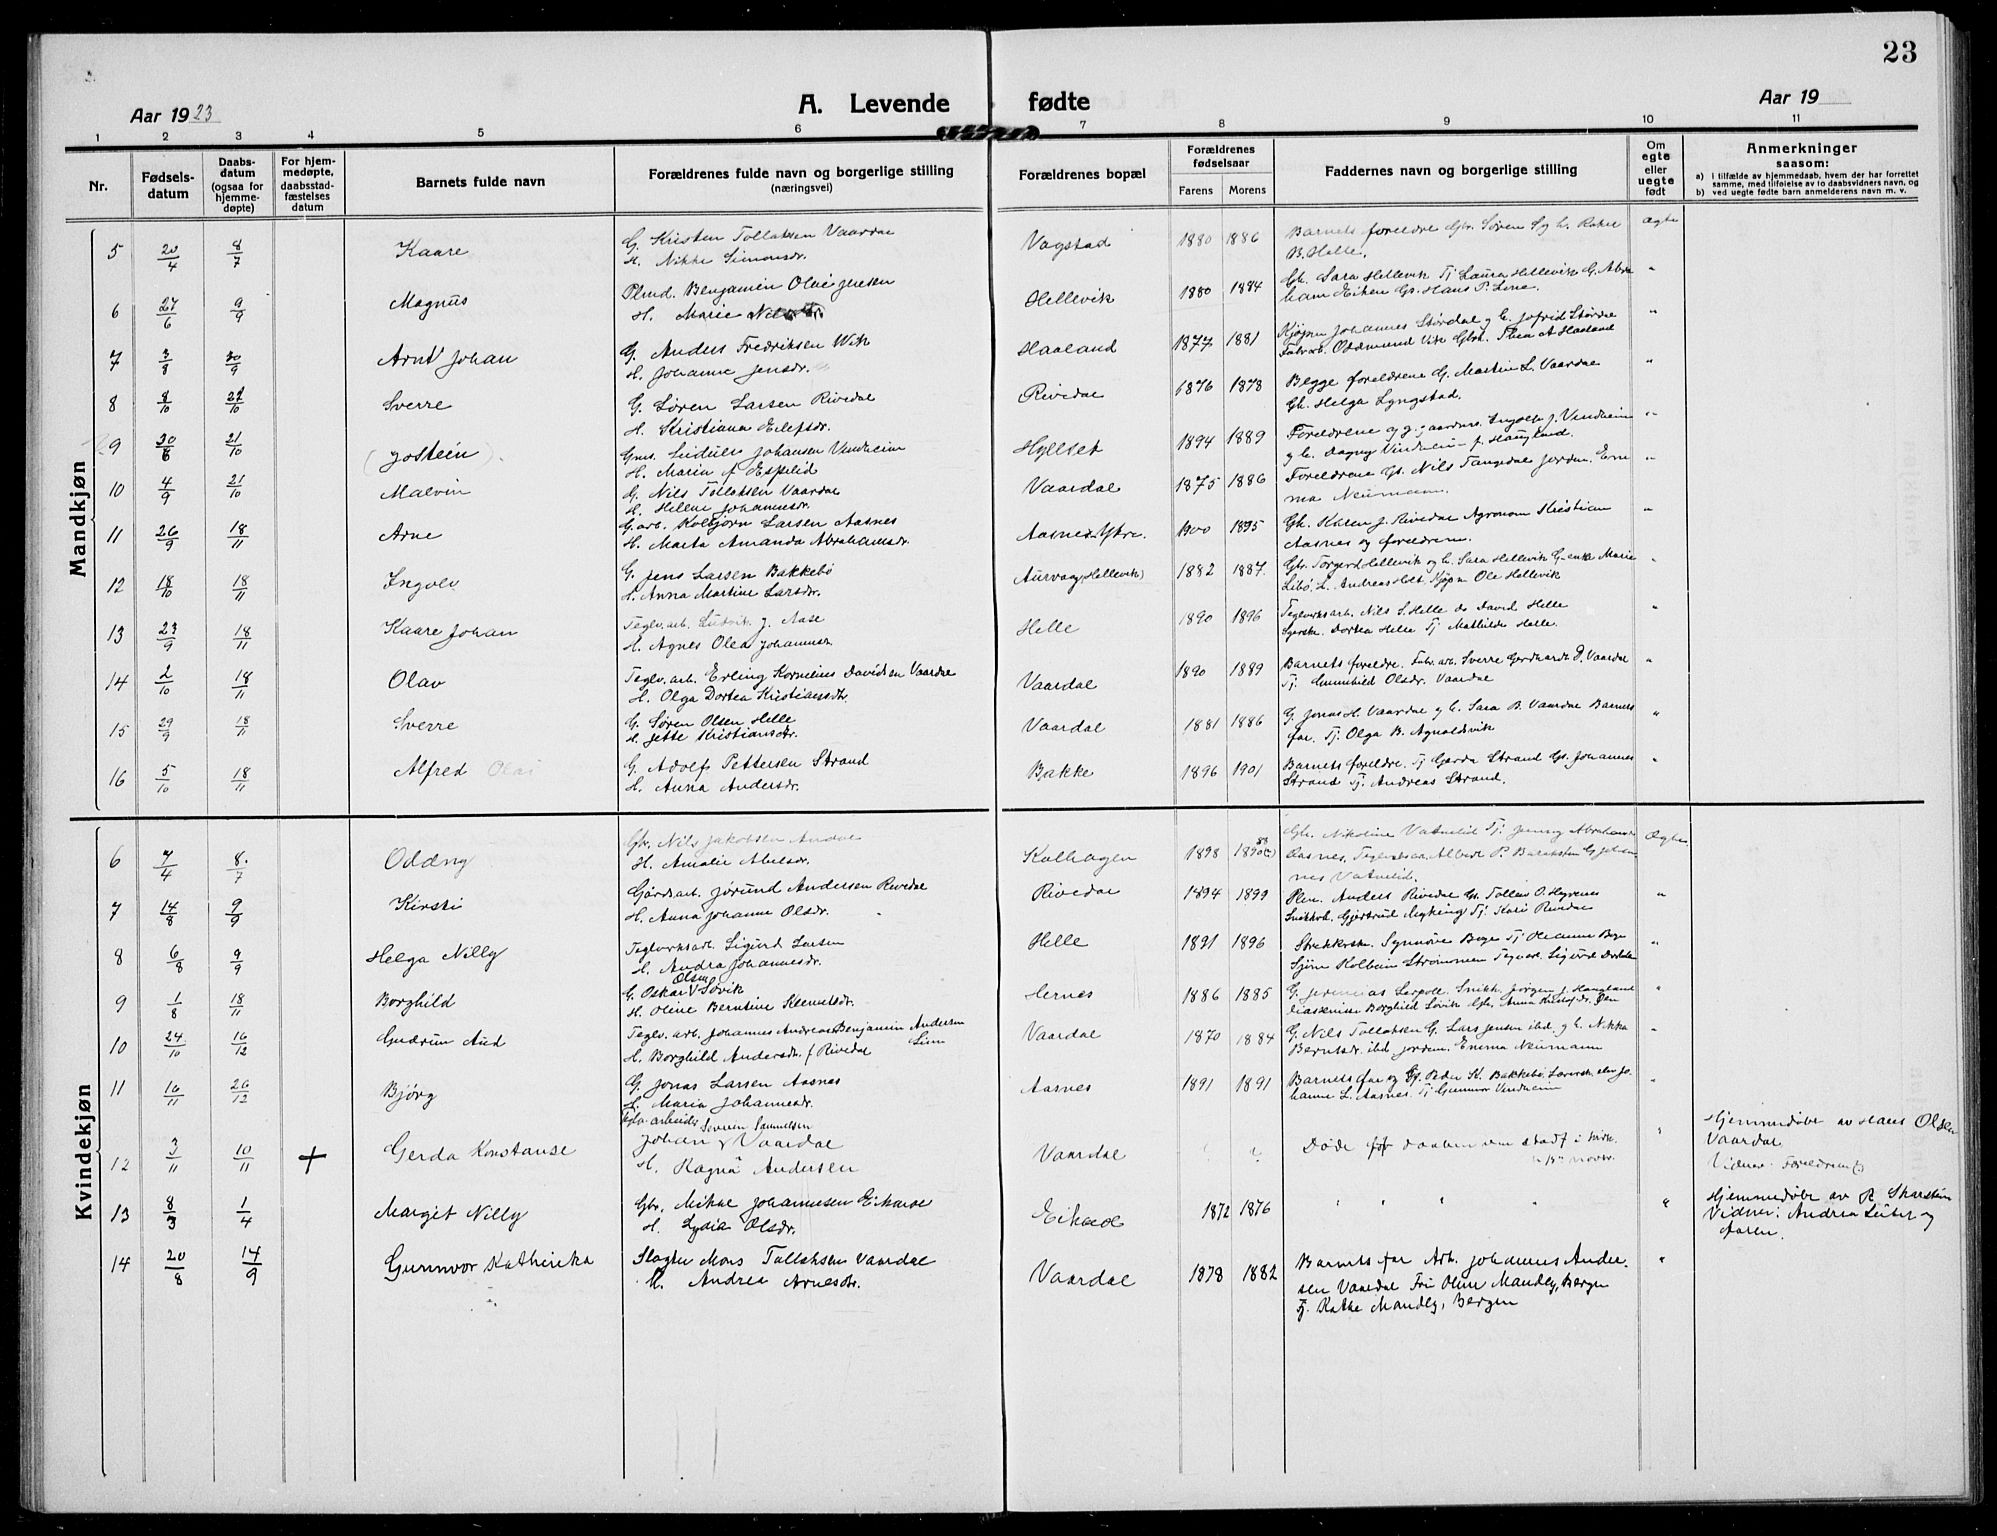 23
Aar 1923
A. Levende fødte
Aar 19
1 2 3 4 5 6 7 8 9 10 11
Nr.
Fødsels-
datum
Daabs-
datum
(ogsaa for
hjemme-
døpte)
For hjem-
medøpte,
daabsstad-
fæstelses
datum
Barnets fulde navn
Forældrenes fulde navn og borgerlige stilling
(næringsvei)
Forældrenes bopæl
Forældrenes
fødselsaar
Farens Morens
Faddernes navn og borgerlige stilling
Om
egte
eller
uegte
født
Anmerkninger
saasom:
a) i tilfælde av hjemmedaab, hvem der har forrettet
samme, med tilføielse av to daabsvidners navn, og
b) ved uegte fødte barn anmelderens navn m. v.
Mandkjøn
5 20/4 8/7 Kaare G. Kristen Tollaksen Vaardal Vagstad 1880 1886 Barnets foreldre Gbr. Søren S. og h. Rakel ægte
H. Nikke Simonsdr. B. Helle.
6 27/6 9/9 Magnus Benjamin Olai Jensen Hellevik 1880 1884 Gh. Sara Hellevik Tj Laura Hellevik G. Abra "
H. Marie ham Eiken Gs. Hans P. Line.
7 3/8 30/9 Arnt Johan G. Anders Fredriksen Wik Haaland 1877 1881 Kjøpm Johannes Størdal og h. Jofrid Størdal "
H. Johanne Jensdr. Fabr.arb. Oddmund Vik Gbrh. Thea A Haaland
8 8/10 21/10 Sverre G. Søren Larsen Rivedal Rivedal 1876 1878 Begge foreldrene G. Martin L. Vaardal "
H. Kristiana Eilefsdr. Gh. Helga Lyngstad.
9 30/6 21/10 (Jostein) Johansen Vindheim Hyllset 1894 1889 Foreldrene og Ingolf J. Vindheim "
H. Maria f Espelid og h. Dagny Vindheim f. Haugland.
10 4/9 21/10 Malvin G. Nils Tollaksen Vaardal Vaardal 1875 1886 Foreldrene Gs. Nils Tangedal Jordm. Em "
H. Helene Johannesdr. ma Neumann.
11 26/9 18/11 Arne G.arb. Kolbjørn Larsen Aasnes Aasnes 1900 1895 Gh. Karen J. Rivedal Agronom Kristian "
H. Marta Amanda Abrahamsdr. Aasnes og foreldrene.
12 18/10 18/11 Ingolv G. Jens Larsen Bakkebø Aurvaag (Hellevik) 1882 1887. Gbr. Torgerd Hellevik og h. Sara Hellevik G-enke Marie "
H. Anna Martine Larsdr. Libø, L. Andreas Holt, Kjøpm Ole Hellevik
13 23/9 18/11 Kaare Johan Teglv.arb. Ludvik J. Aase Helle 1890 1896 Teglverksarb. Nils S. Helle do David Helle "
H. Agnes Olea Johannesdr. Dortea Helle Tj Mathilde Helle.
14 2/10 18/11 Olav Teglv. arb. Erling Kornelius Davidsen Vaardal Vaardal 1890 1889 Barnets foreldre. Fabr. arb. Sverre Gerdhardt D. Vaardal "
H. Olga Dortea Kristiansdtr. Tj. Gunnhild Olsdr. Vaardal
15 29/9 18/11 Sverre G. Søren Olsen Helle Vaardal 1881 1886 G. Jonas H. Vaardal og h. Sara B. Vaardal Barnets "
H. Jette Kristiansdr. far. Tj. Olga B. Agnaldsvik
16 5/10 18/11 Alfred Olai G. Adolf Pettersen Strand Bakke 1896 1901 Barnets foreldre. Tj Gerda Strand Gs. Johannes "
H. Anna Andersdr. Strand Tj. Andreas Strand.
Kvindekjøn
6 7/4 8/7 Oddny Gbr. Nils Jakobsen Andal Kolhagen 1898 1890 Gh. Nikoline Vatnelid Tj Jenny Abrahamsdr ægte
H. Amalie Abelsdr. Aasnes, Teglverksarb. Albert P. Baruksten G Johan
nes Vatnelid.
7 14/8 9/9 Kirsti Gårdsarb. Jørund Andersen Rivedal Rivedal 1894 1899 Anders Rivedal Gs. Tolleiv O. Hyvenes "
H. Anna Johanne Olsdr. Gjertrud Myking Tj. Kari Rivedal
8 6/8 9/9 Helga Nilly Teglverksarb. Sigurd Larsen Helle 1891 1896 Synnøve Boge Tj Oleanna Boge "
H. Andrea Johannesdr. Sjøm Kolbein Strømmen Sigurd
9 1/8 18/11 Borghild G. Oskar Olsen Søvik Hernes 1886 1885 G. Jeremias Leepoll. Snikk. Jørgen J. Haugland "
H. Oline Berntine Klemetsdr. Borghild Løvik Gh. Anna
10 24/10 16/12 Gudrun Aud Teglv. arb. Johannes Andreas Benjamin Andersen Vaardal 1870 1884 G. Nils Tollaksen G. Lars Jensen ibd. og h. Nikka "
H. Borghild Andersdr. f Rivedal Berntsdr. ibd Jordm. Emma Neumann
11 16/11 26/12 Bjørg G. Jonas Larsen Aasnes Aasnes 1891 1891 Barnets far og Gf. Peder K. Bakkebø. elev Jo "
H. Maria Johannesdr. hanne L. Aasnes. Tj Gunnvor Vindheim
12 3/11 10/11 + Gerda Konstanse arbeider Severin Samuelsen Vaardal ? ? Døde før daaben um stadf i kirke. " Hjemmedøbt av Hans Olsen
Johan Vaardal Vaardal
H. Ragna Andersen Vidner: Foreldrene(?)
13 8/3 1/4 Margit Nilly Gbr. Mikal Johannesen Eikaas Eikaas 1872 1876 " " " " Hjemmedøbt av P. Skarstein
H. Lydia Olsdr. Vidner: Andrea Leiter og
faren.
14 20/8 14/9 Gunnvor Katherika Slagter Mons Tollaksen Vaardal Vaardal 1878 1882 Barnets far Arb. Johannes Ander- "
H. Andrea Arnesdtr. sen Vaardal Fru Oline Mandly, Bergen
Fj. Kathe Mandly, Bergen